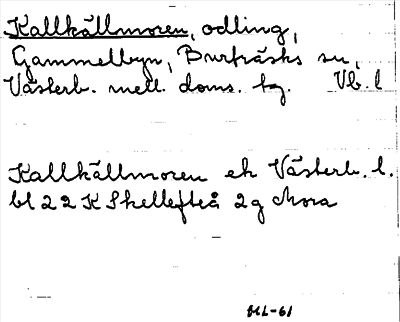 Kallkällmoren, odling,
Gammelbyn, Burträsks sn,
Västerb. mell. doms. tg. Vb. l
Kallkällmoren ek Västerb. l.
bl 22 K Skellefteå 2g Mora
HL-61